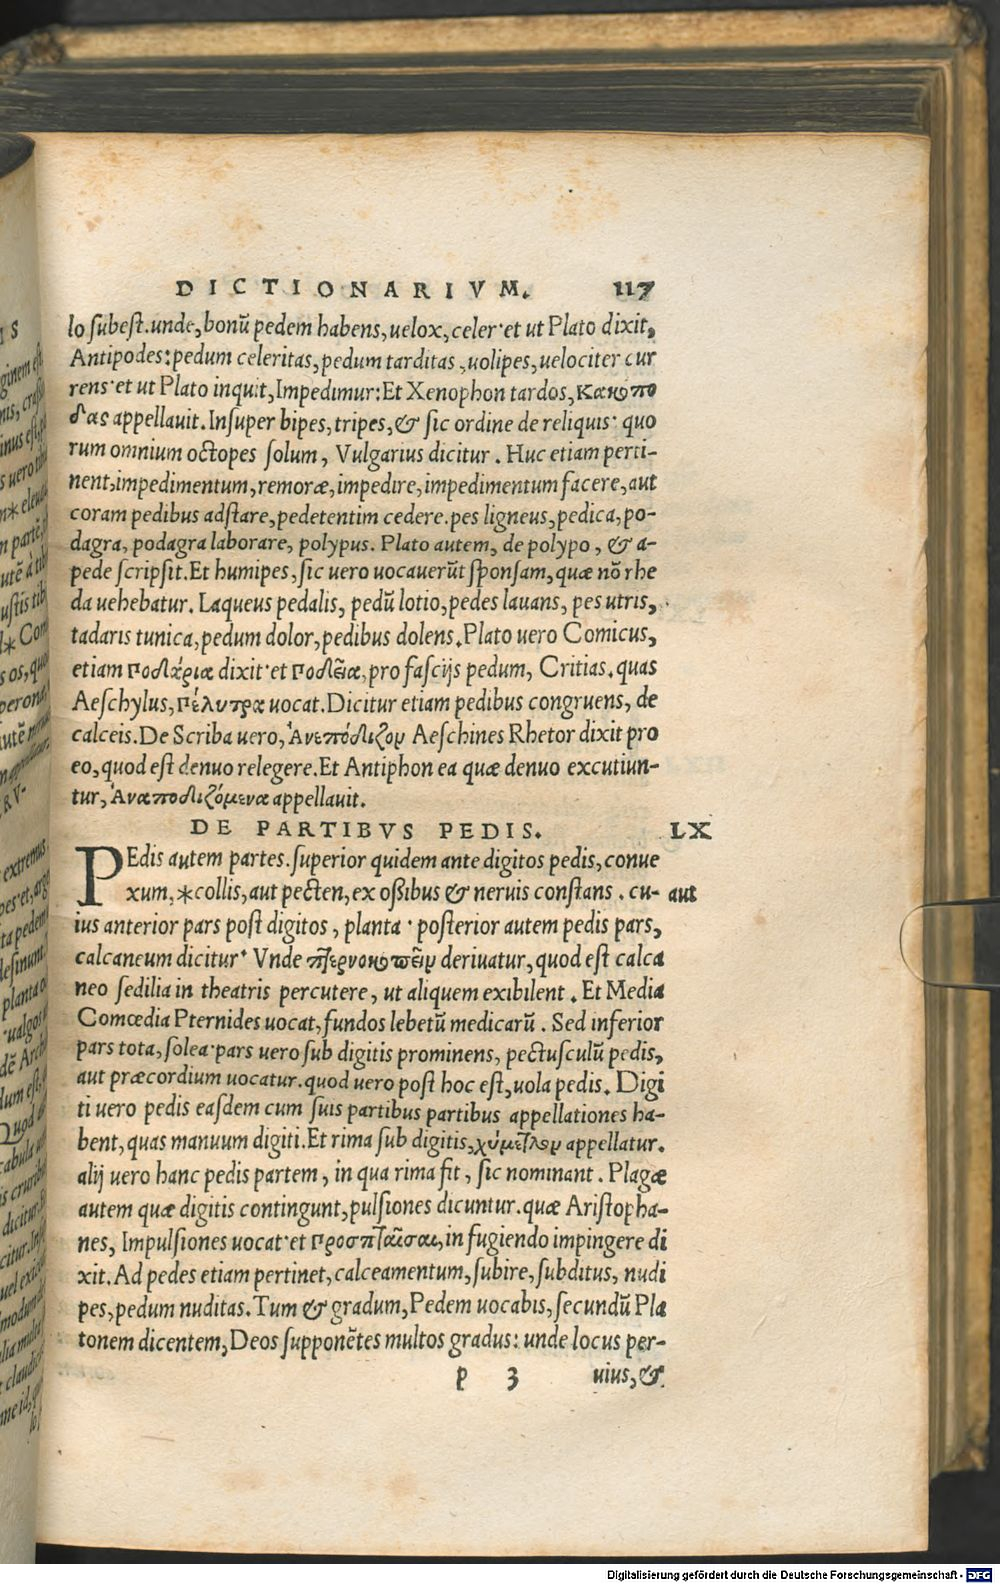 DICTIONARIVM. 117
lo ſubeſt. unde, bonũ pedem habens, uelox, celer· et ut Plato dixit,
Antipodes: pedum celeritas, pedum tarditas, uolipes, uelociter cur
rens· et ut Plato inquit, Impedimur: Et Xenophon tardos, κακοπο
δας appellauit. Inſuper bipes, tripes, & ſic ordine de reliquis· quo
rum omnium octopes ſolum, Vulgarius dicitur. Huc etiam perti-
nent, impedimentum, remoræ, impedire, impedimentum facere, aut
coram pedibus adſtare, pedetentim cedere. pes ligneus, pedica, po-
dagra, podagra laborare, polypus. Plato autem, de polypo, & a-
pede ſcripſit. Et humipes, ſic uero uocauerũt ſponſam, quæ nõ rhe
da uehebatur. Laqueus pedalis, pedũ lotio, pedes lauans, pes utris,
tadaris tunica, pedum dolor, pedibus dolens. Plato uero Comicus,
etiam ποδάρια dixit· et ποδεῖα, pro faſcijs pedum, Critias. quas
Aeſchylus, πέλυτρα uocat. Dicitur etiam pedibus congruens, de
calceis. De Scriba uero, Ἀνεπόδιζον Aeſchines Rhetor dixit pro
eo, quod eſt denuo relegere. Et Antiphon ea quæ denuo excutiun-
tur, Ἀναποδιζόμενα appellauit.
DE PARTIBVS PEDIS. LX
PEdis autem partes. ſuperior quidem ante digitos pedis, conue
xum, *collis, aut pecten, ex oſſibus & neruis conſtans. cu- aut
ius anterior pars poſt digitos, planta· poſterior autem pedis pars,
calcaneum dicitur· Vnde πτερνοκοπεῖν deriuatur, quod eſt calca
neo ſedilia in theatris percutere, ut aliquem exibilent. Et Media
Comœdia Pternides uocat, fundos lebetũ medicarũ. Sed inferior
pars tota, ſolea· pars uero ſub digitis prominens, pectuſculũ pedis,
aut præcordium uocatur. quod uero poſt hoc eſt, uola pedis. Digi
ti uero pedis eaſdem cum ſuis partibus partibus appellationes ha-
bent, quas manuum digiti. Et rima ſub digitis, χύμετλον appellatur.
alij uero hanc pedis partem, in qua rima fit, ſic nominant. Plagæ
autem quæ digitis contingunt, pulſiones dicuntur. quæ Ariſtopha-
nes, Impulſiones uocat· et προσπταῖσαι, in fugiendo impingere di
xit. Ad pedes etiam pertinet, calceamentum, ſubire, ſubditus, nudi
pes, pedum nuditas. Tum & gradum, Pedem uocabis, ſecundũ Pla
tonem dicentem, Deos ſupponẽtes multos gradus: unde locus per-
p 3 uius, &
Digitalisierung gefördert durch die Deutsche Forschungsgemeinschaft - DFG